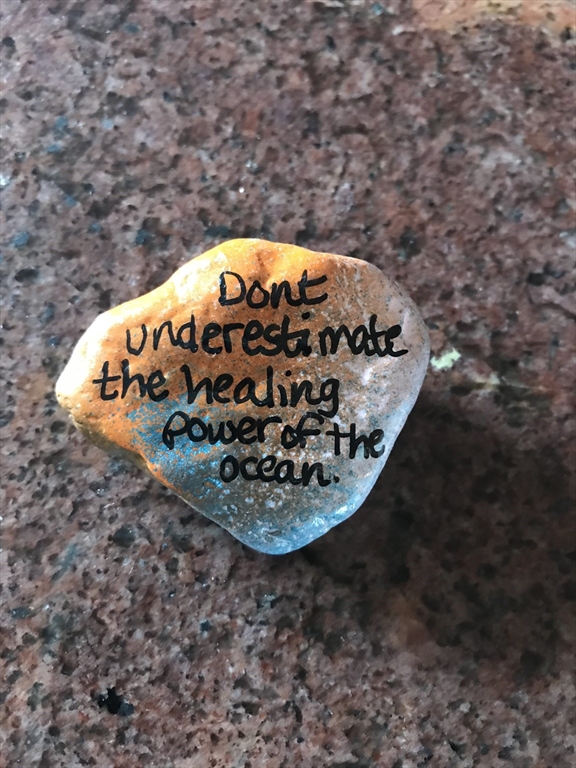 Dont
underestimate
the healing
power of the
ocean.